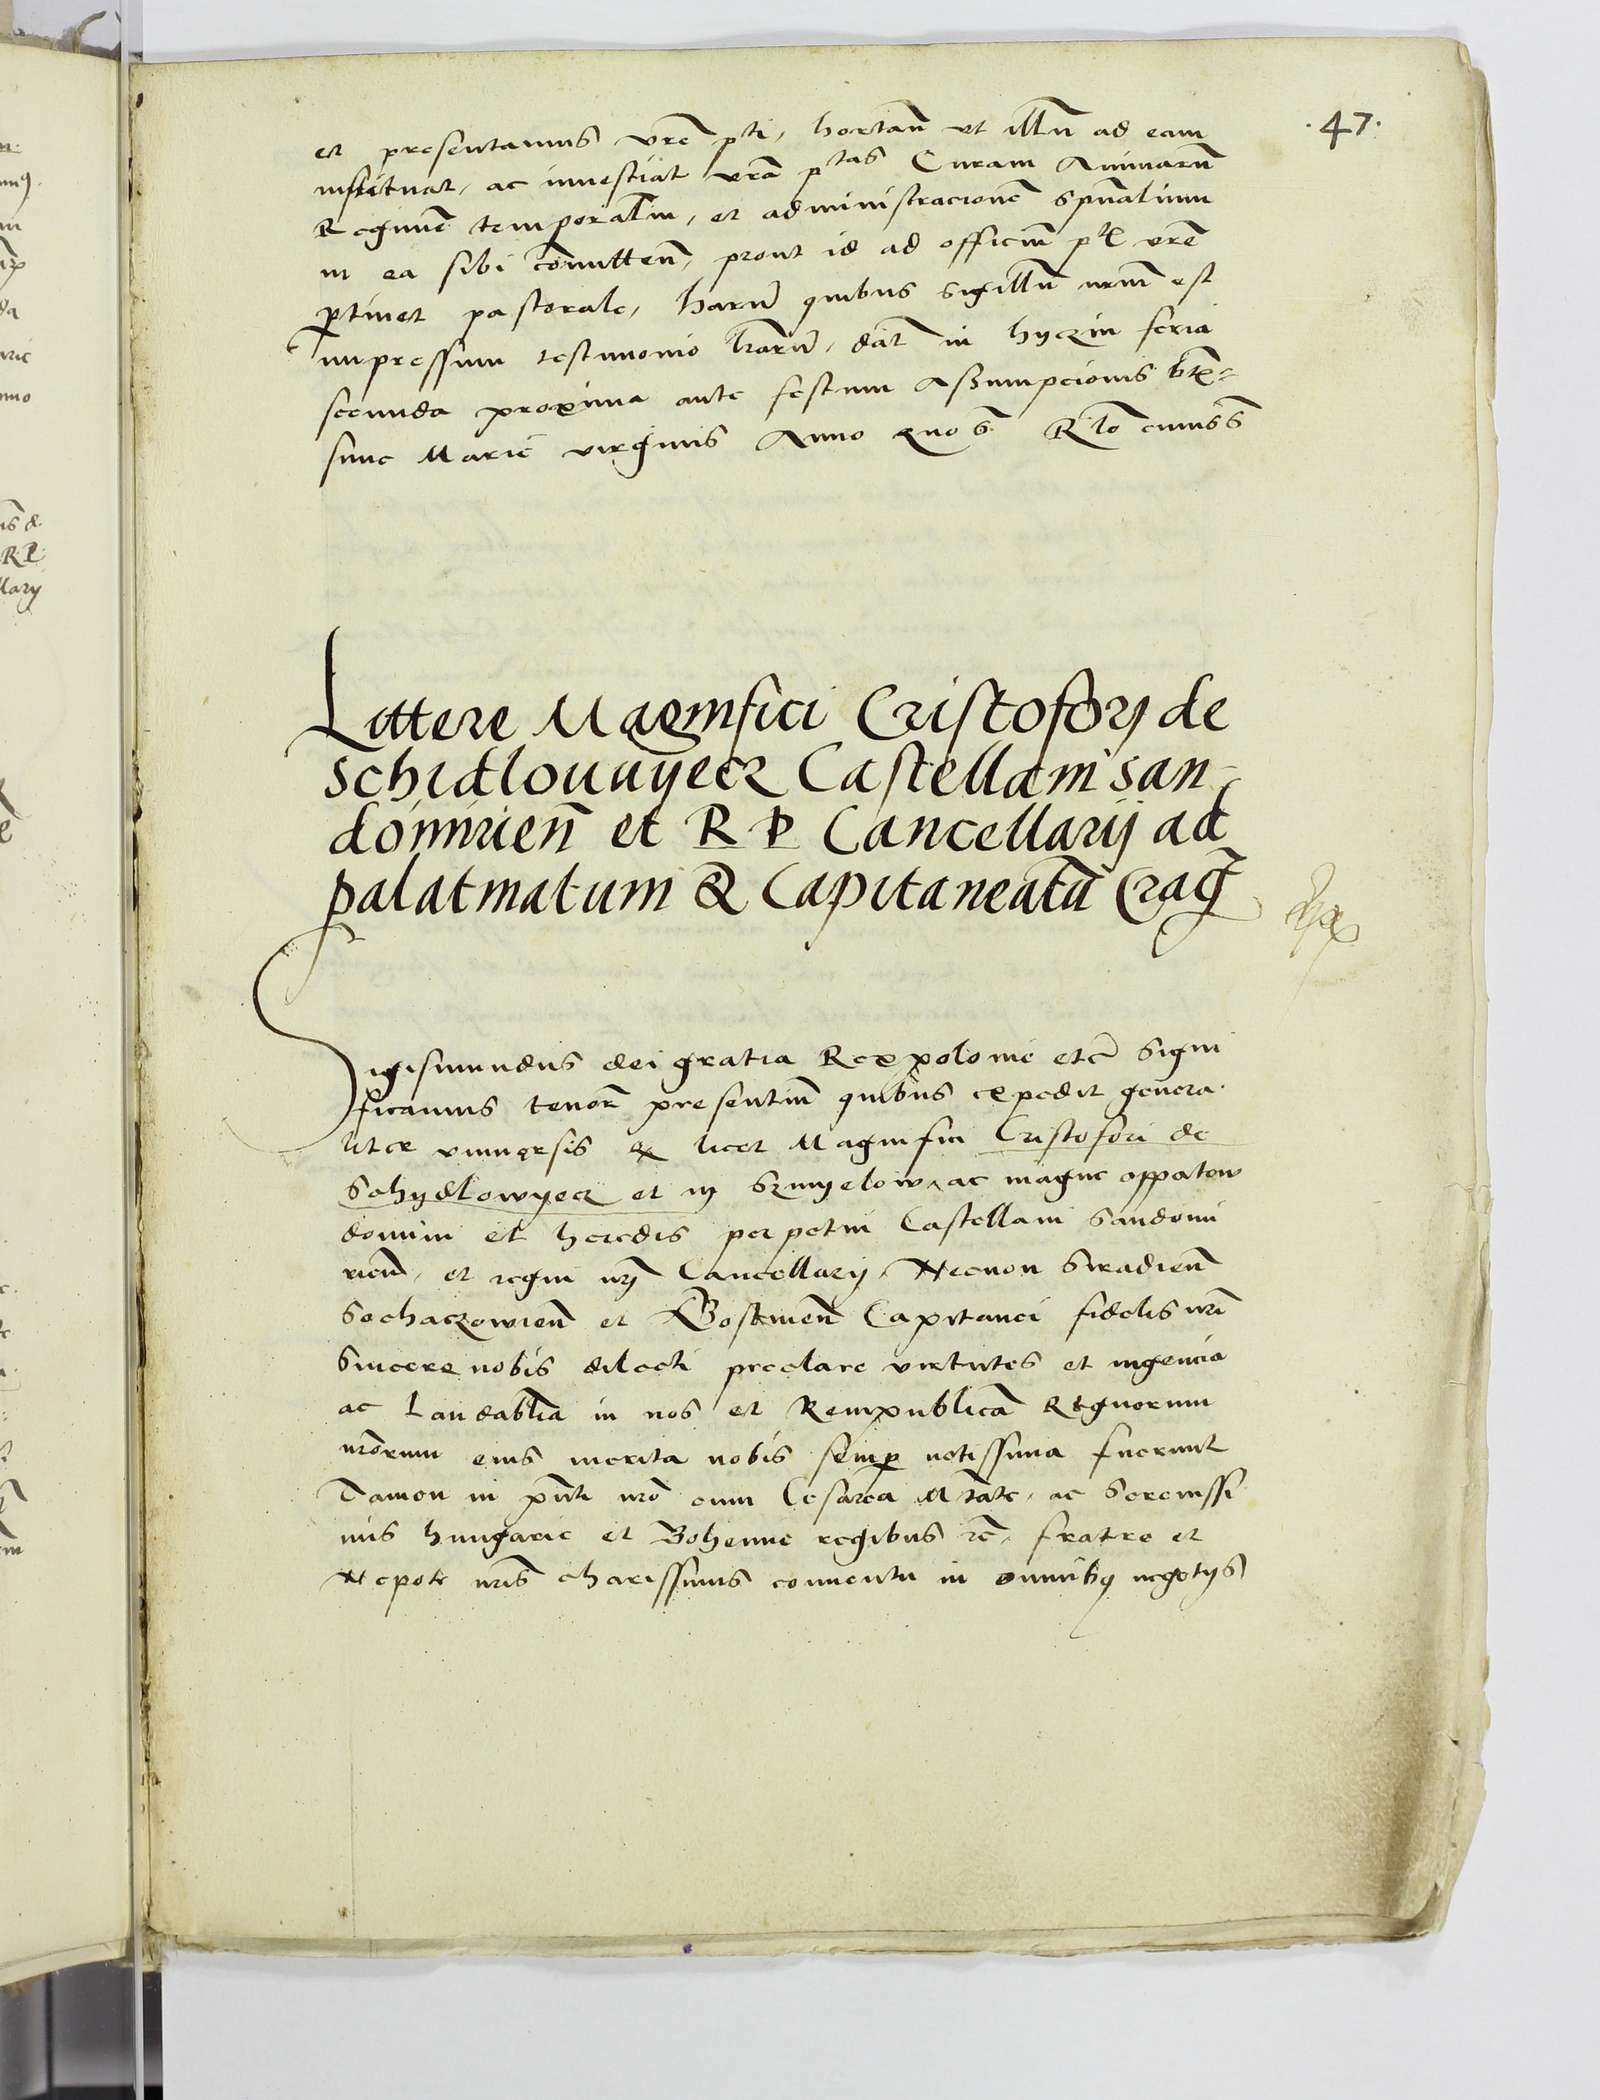 ·47·
et presentamus vrē pti, hortañ vt illū ad eam
instituat, ac inuestiat vrā ptas Curam Animarū
Regimē temporaliū, et administracionē spūalium
in ea sibi cōmitteñ, prout id ad officiū ptl vrē
ptinet pastorale, harū quibus sigillū nrūm est
impressum testimonio lrārū, dat in hyczin feria
secunda proxima ante festum Assumpcionis btē=
sime Marie virginis Anno quo s. Rlō cuiuss
Littere Magnifici Cristofory de
schidlouuyecz Castellani san-
domirien̄ et R P Cancellarij ad
palatinatum & Capitaneatū Crac̄
Sigismundus dei gratia Rex polonie etc̄ Signi
ficamus tenorē presentiū quibus expedit genera
liter vniuersis & licet Magnifici Cristofori de
Schydlowyecz et in Szmyelow, ac magne oppatow
domini et heredis perpetui Castellani Sandomi
rien̄, et regni nrj Cancellary, Necnon Siradien̄
Sochaczowien̄ et Gostinen̄ Capitanei fidelis nrī
Sincere nobis dilecti preclare virtutes et ingencia
ac Laudabilia in nos et Rempublicā Regnorum
nrōrum eius merita nobis semp notissima fuerunt
Tamen in pñti nrō cum Cesarea Mtāte, ac Serenissi
mis hungarie et Bohemie regibus rē, fratre et
Nepote nrīs charissimis conuentu in omnibq negotijs